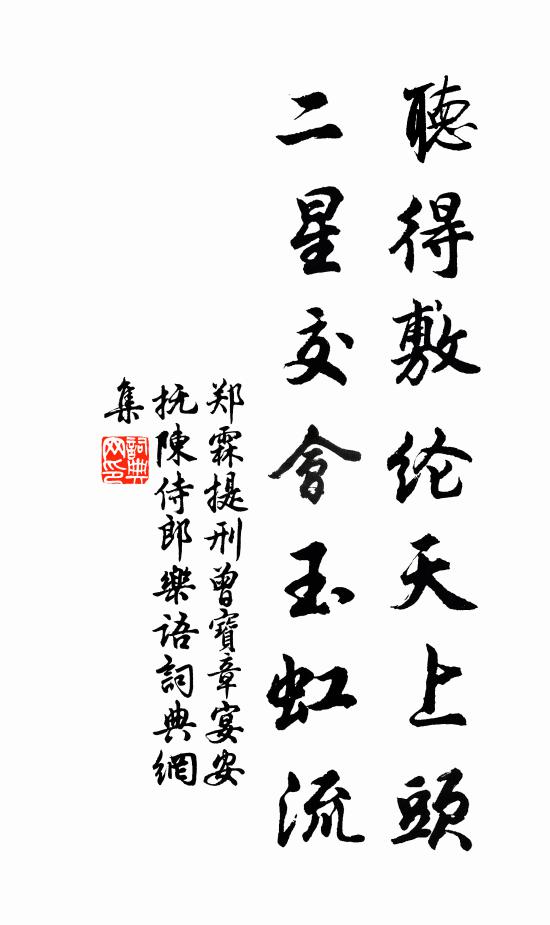 聽得敷纶天上頭
二星交會玉虹流
郑霖提刑曾寶章宴安
抚陳侍郎樂語詞典網
集
詞典网印